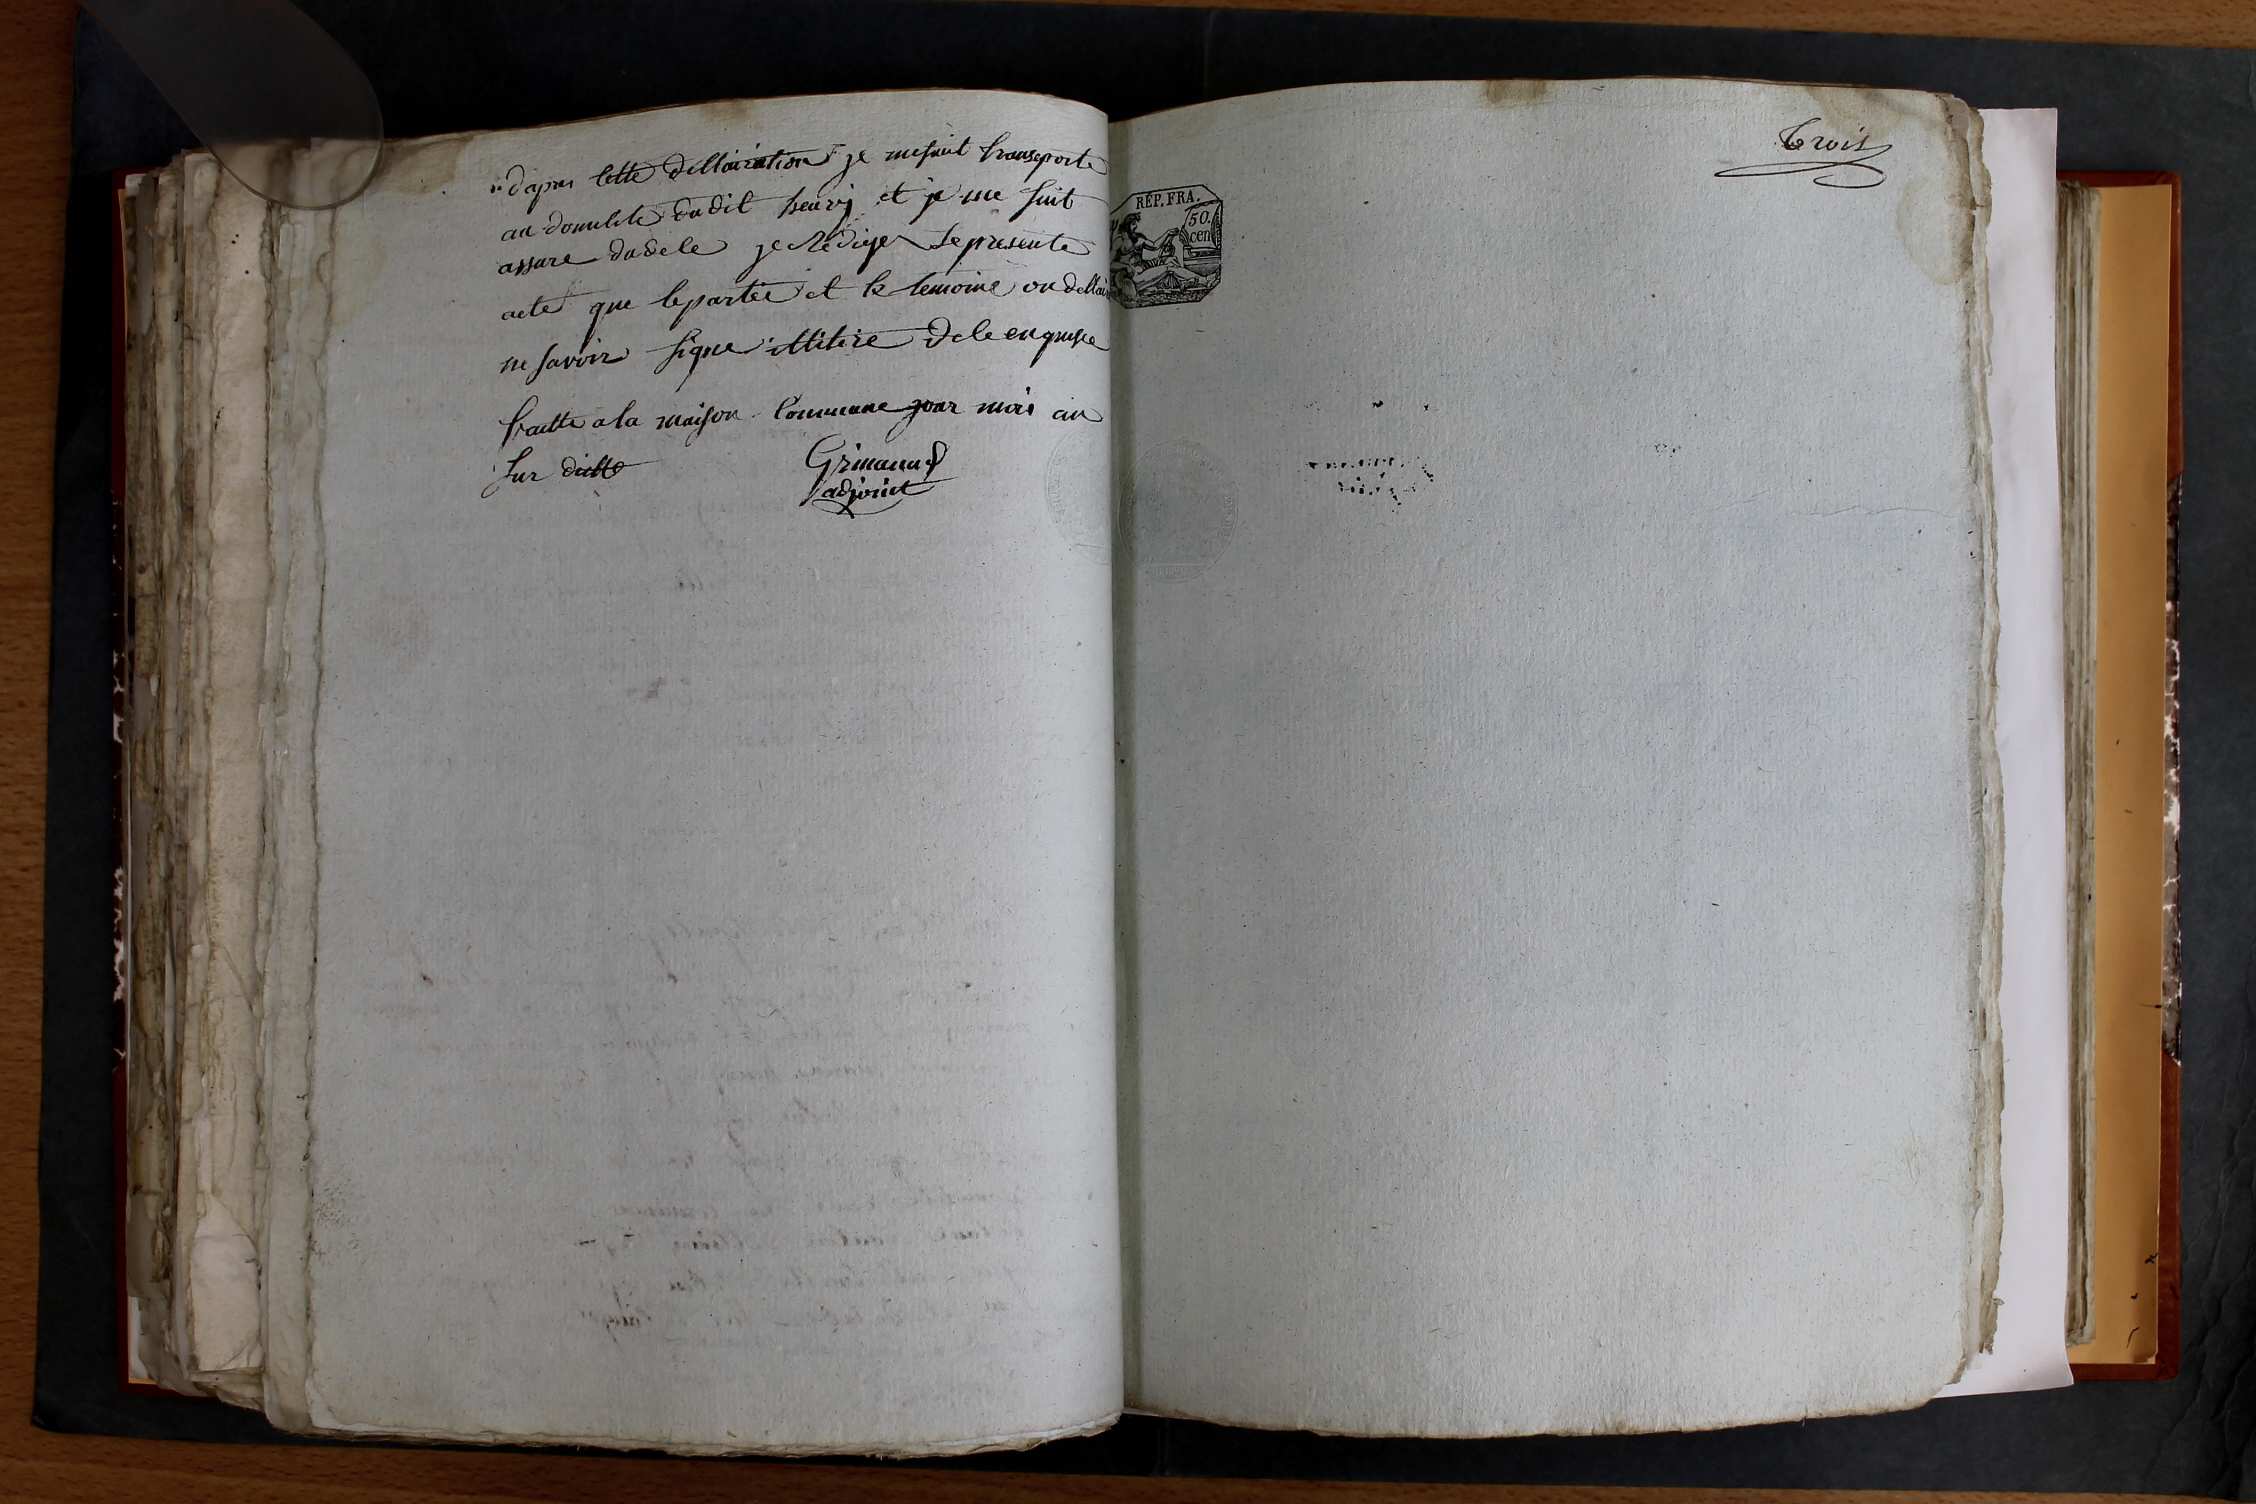 dapres cette dellairation je me suit transporte
au domicile dudit henrÿ et je me suit
assure dudele je redige le presente
acte que le partie et le temoine on dellair
ne savoir signe de le enquise
faitte a la maison Commune jour mois an
sur ditte
Grimaud
adjoint
Trois
RÉP. FRA.
50.
cen